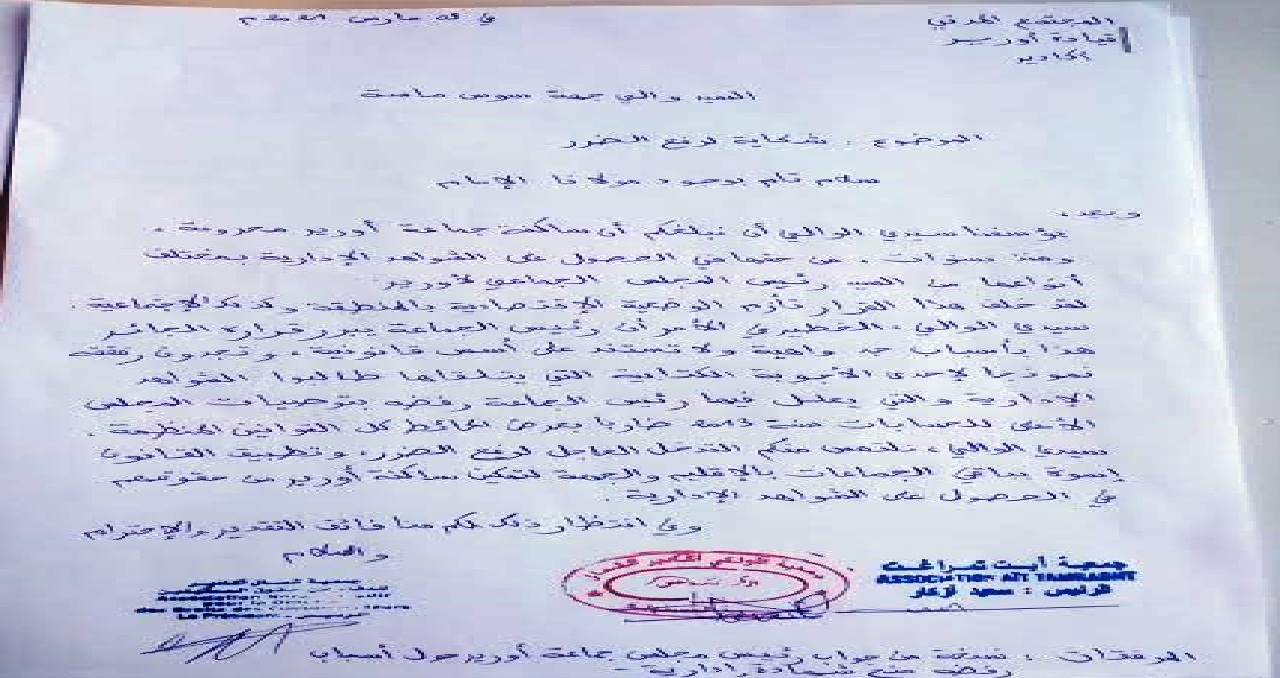 المجتمع المدني
قيادة أورير
أكادير
في مارس
السيد والي جهة سوس ماسة
الموضوع : شكاية لرفع الضرر
سلام تام بوجود مولانا الإمام
وبعد،
يؤسفنا سيدي الوالي أن نبلغكم أن ساكنة جماعة أورير محرومة،
ومنذ سنوات، من حقها في الحصول على الشواهد الإدارية بمختلف
أنواعها من السيد رئيس المجلس الجماعي لأورير.
لقد خلف هذا القرار تأزم الوضعية الإقتصادية بالمنطقة وكذلك الإجتماعية.
سيدي الوالي، الخطير في الأمر أن رئيس الجماعة يبرر قراره الجائر
هذا بأسباب جد واهية ولا تستند على أسس قانونية، وتجدون رفقته
نموذجا لإحدى الأجوبة الكتابية التي يتلقاها طالبوا الشواهد
الإدارية والتي يعلل فيها رئيس الجماعة رفضه بتوصيات المجلس
الأعلى للحسابات سنة ضاربا بعرض الحائط كل القوانين المنظمة.
سيدي الوالي، نلتمس منكم التدخل العاجل لرفع الضرر، وتطبيق القانون
إسوة بباقي الجماعات بالإقليم والجهة لتمكين ساكنة أورير من حقوقهم
في الحصول على الشواهد الإدارية.
وفي انتظار ذلك لكم منا فائق التقدير والإحترام
والسلام
جمعية أيت تمراغت
ASSOCIATION AIT TAMRAGHT
الرئيس : سعيد
المرفقات : نسخة من جواب رئيس مجلس جماعة أورير حول أسباب
رفضه منح شهادة إدارية -